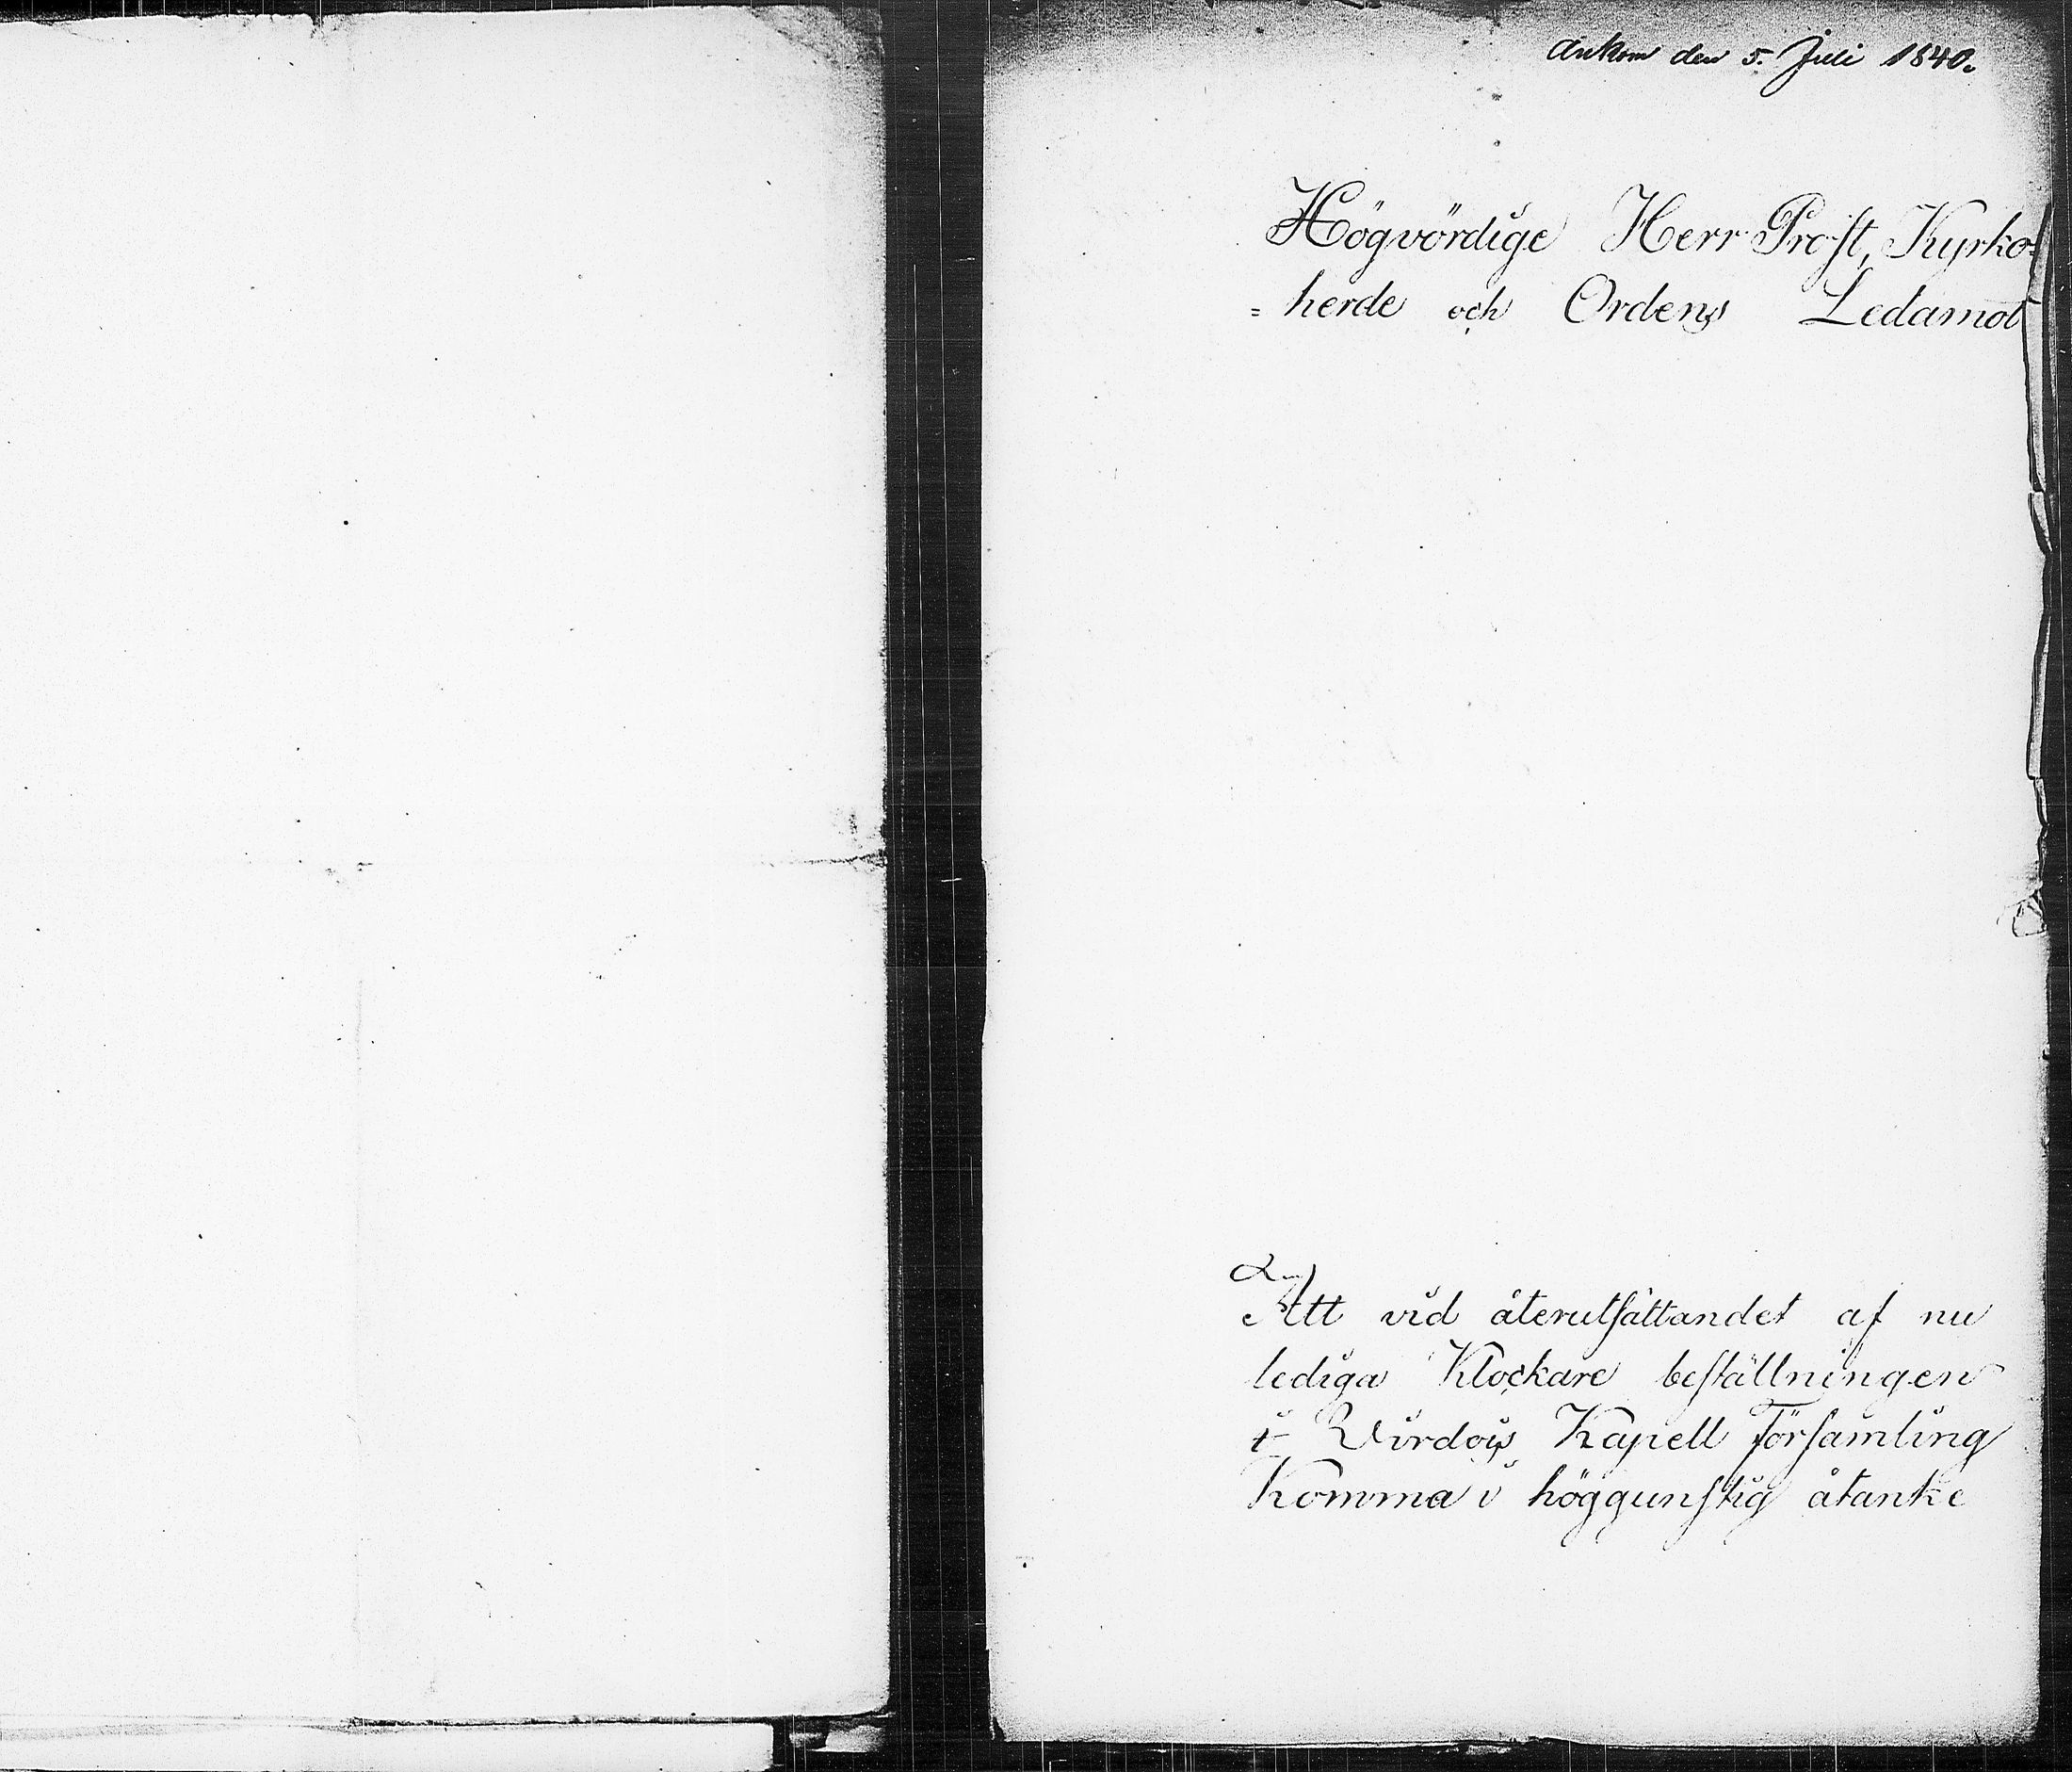 Ankom den 5. Juli 1840.
Högvördige Herr Prost, Kyrko-
= herde och Ordens Ledamot
Att vid återutsättandet af nu
lediga Klockare beställningen
i Virdois Kapell Församling
Komma i höggunstig åtanke